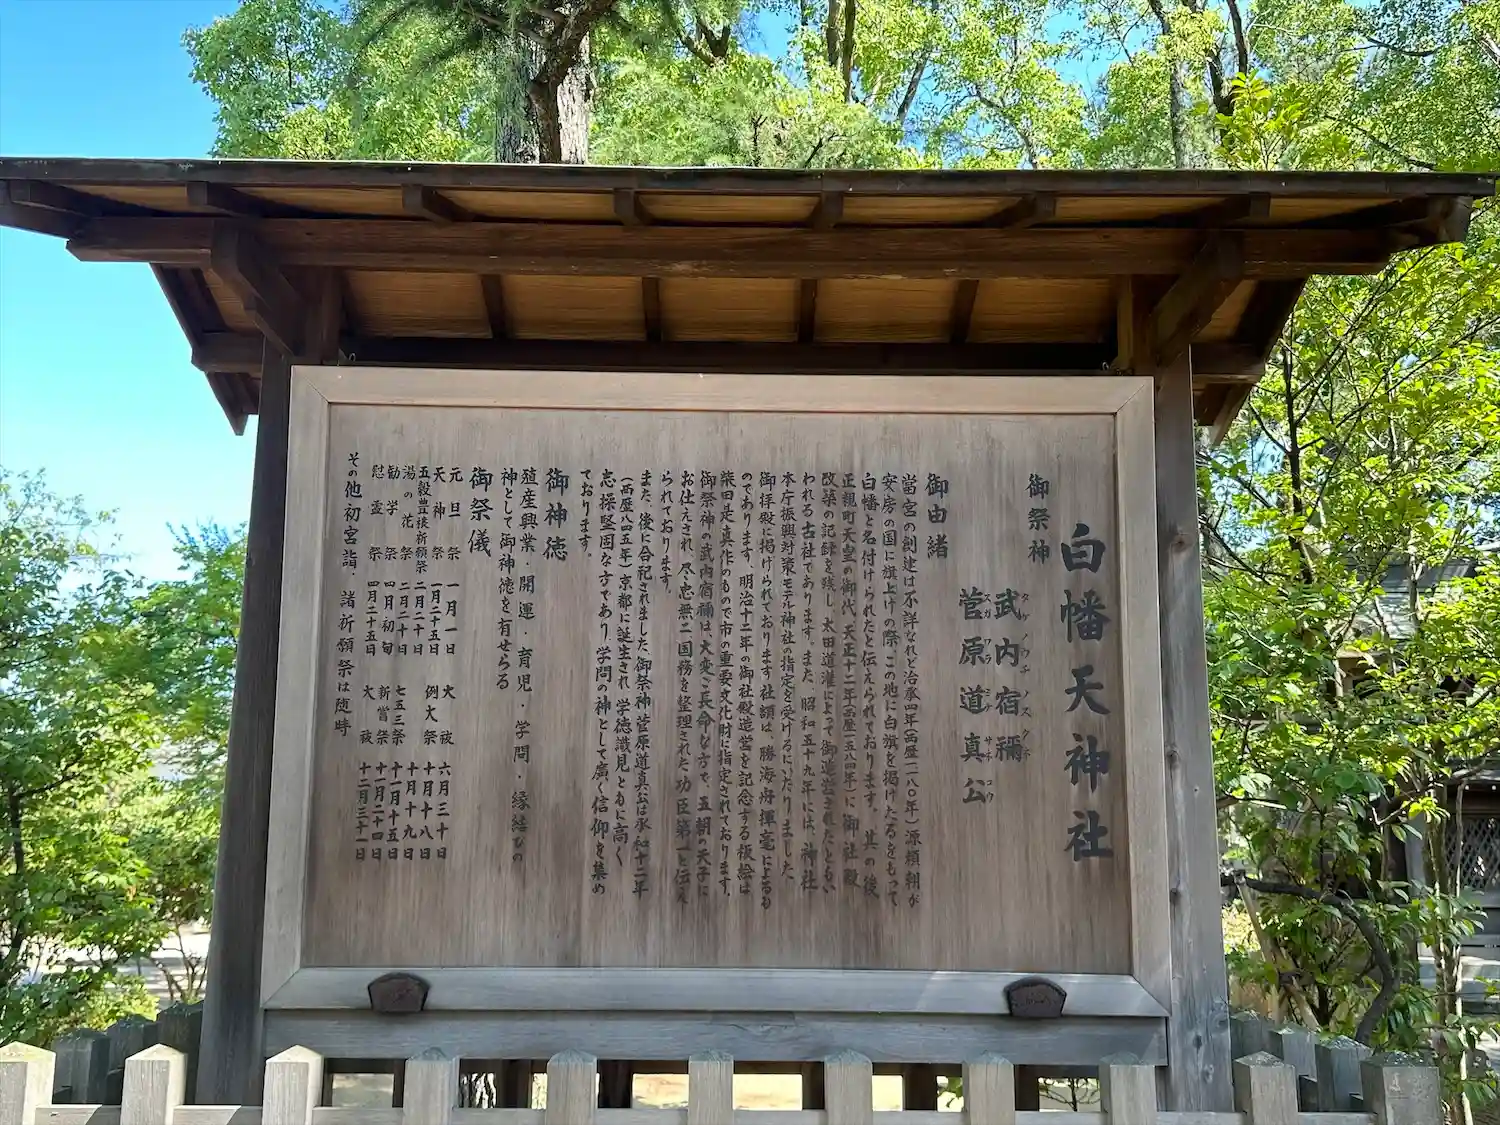 白幡天神社
御祭神
武内宿禰
タケノウチノスクネ
菅原道真公
スガワラミチザネコウ
御由緒
當宮の創建は不詳なれど治承四年(西歴一一八〇年)源頼朝が
安房の国に旗上げの際、この地に白旗を掲げたるをもって
白幡と名付けられたと伝えられております。其の後
正親町天皇の御代、天正十二年(西歴一五八四年)に御社殿
改築の記録を残し、太田道灌によって御造営されたともい
われる古社であります。また、昭和五十九年には、神社
本庁振興対策モデル神社の指定を受けるにいたりました。
御拝殿に掲げられております社額は、勝海舟揮毫によるも
のであります。明治十二年の御社殿造営を記念する板絵は
柴田是真作のもので市の重要文化財に指定されております。
御祭神の武内宿禰は、大変ご長命な方で、五朝の天子に
お仕えされ、尽忠無二国務を整理された功臣第一と伝え
られております。
また、後に合祀されました、御祭神菅原道真公は承和十二年
(西歴八四五年)京都に誕生され、学徳識見ともに高く
志操堅固な方であり、学問の神として廣く信仰を集め
ております。
御神徳
殖産興業・開運・育児・学問・縁結びの
神として御神徳を有せらる
御祭儀
元旦祭 一月一日 大祓 六月三十日
天神祭 一月二十五日 例大祭 十月十八日
五穀豊穣祈願祭 二月二十日 十月十九日
湯の花祭 二月二十日 七五三祭 十一月十五日
勧学祭 四月初旬 新嘗祭 十一月二十四日
慰霊祭 四月二十五日 大祓 十二月三十一日
その他初宮詣・諸祈願祭は随時